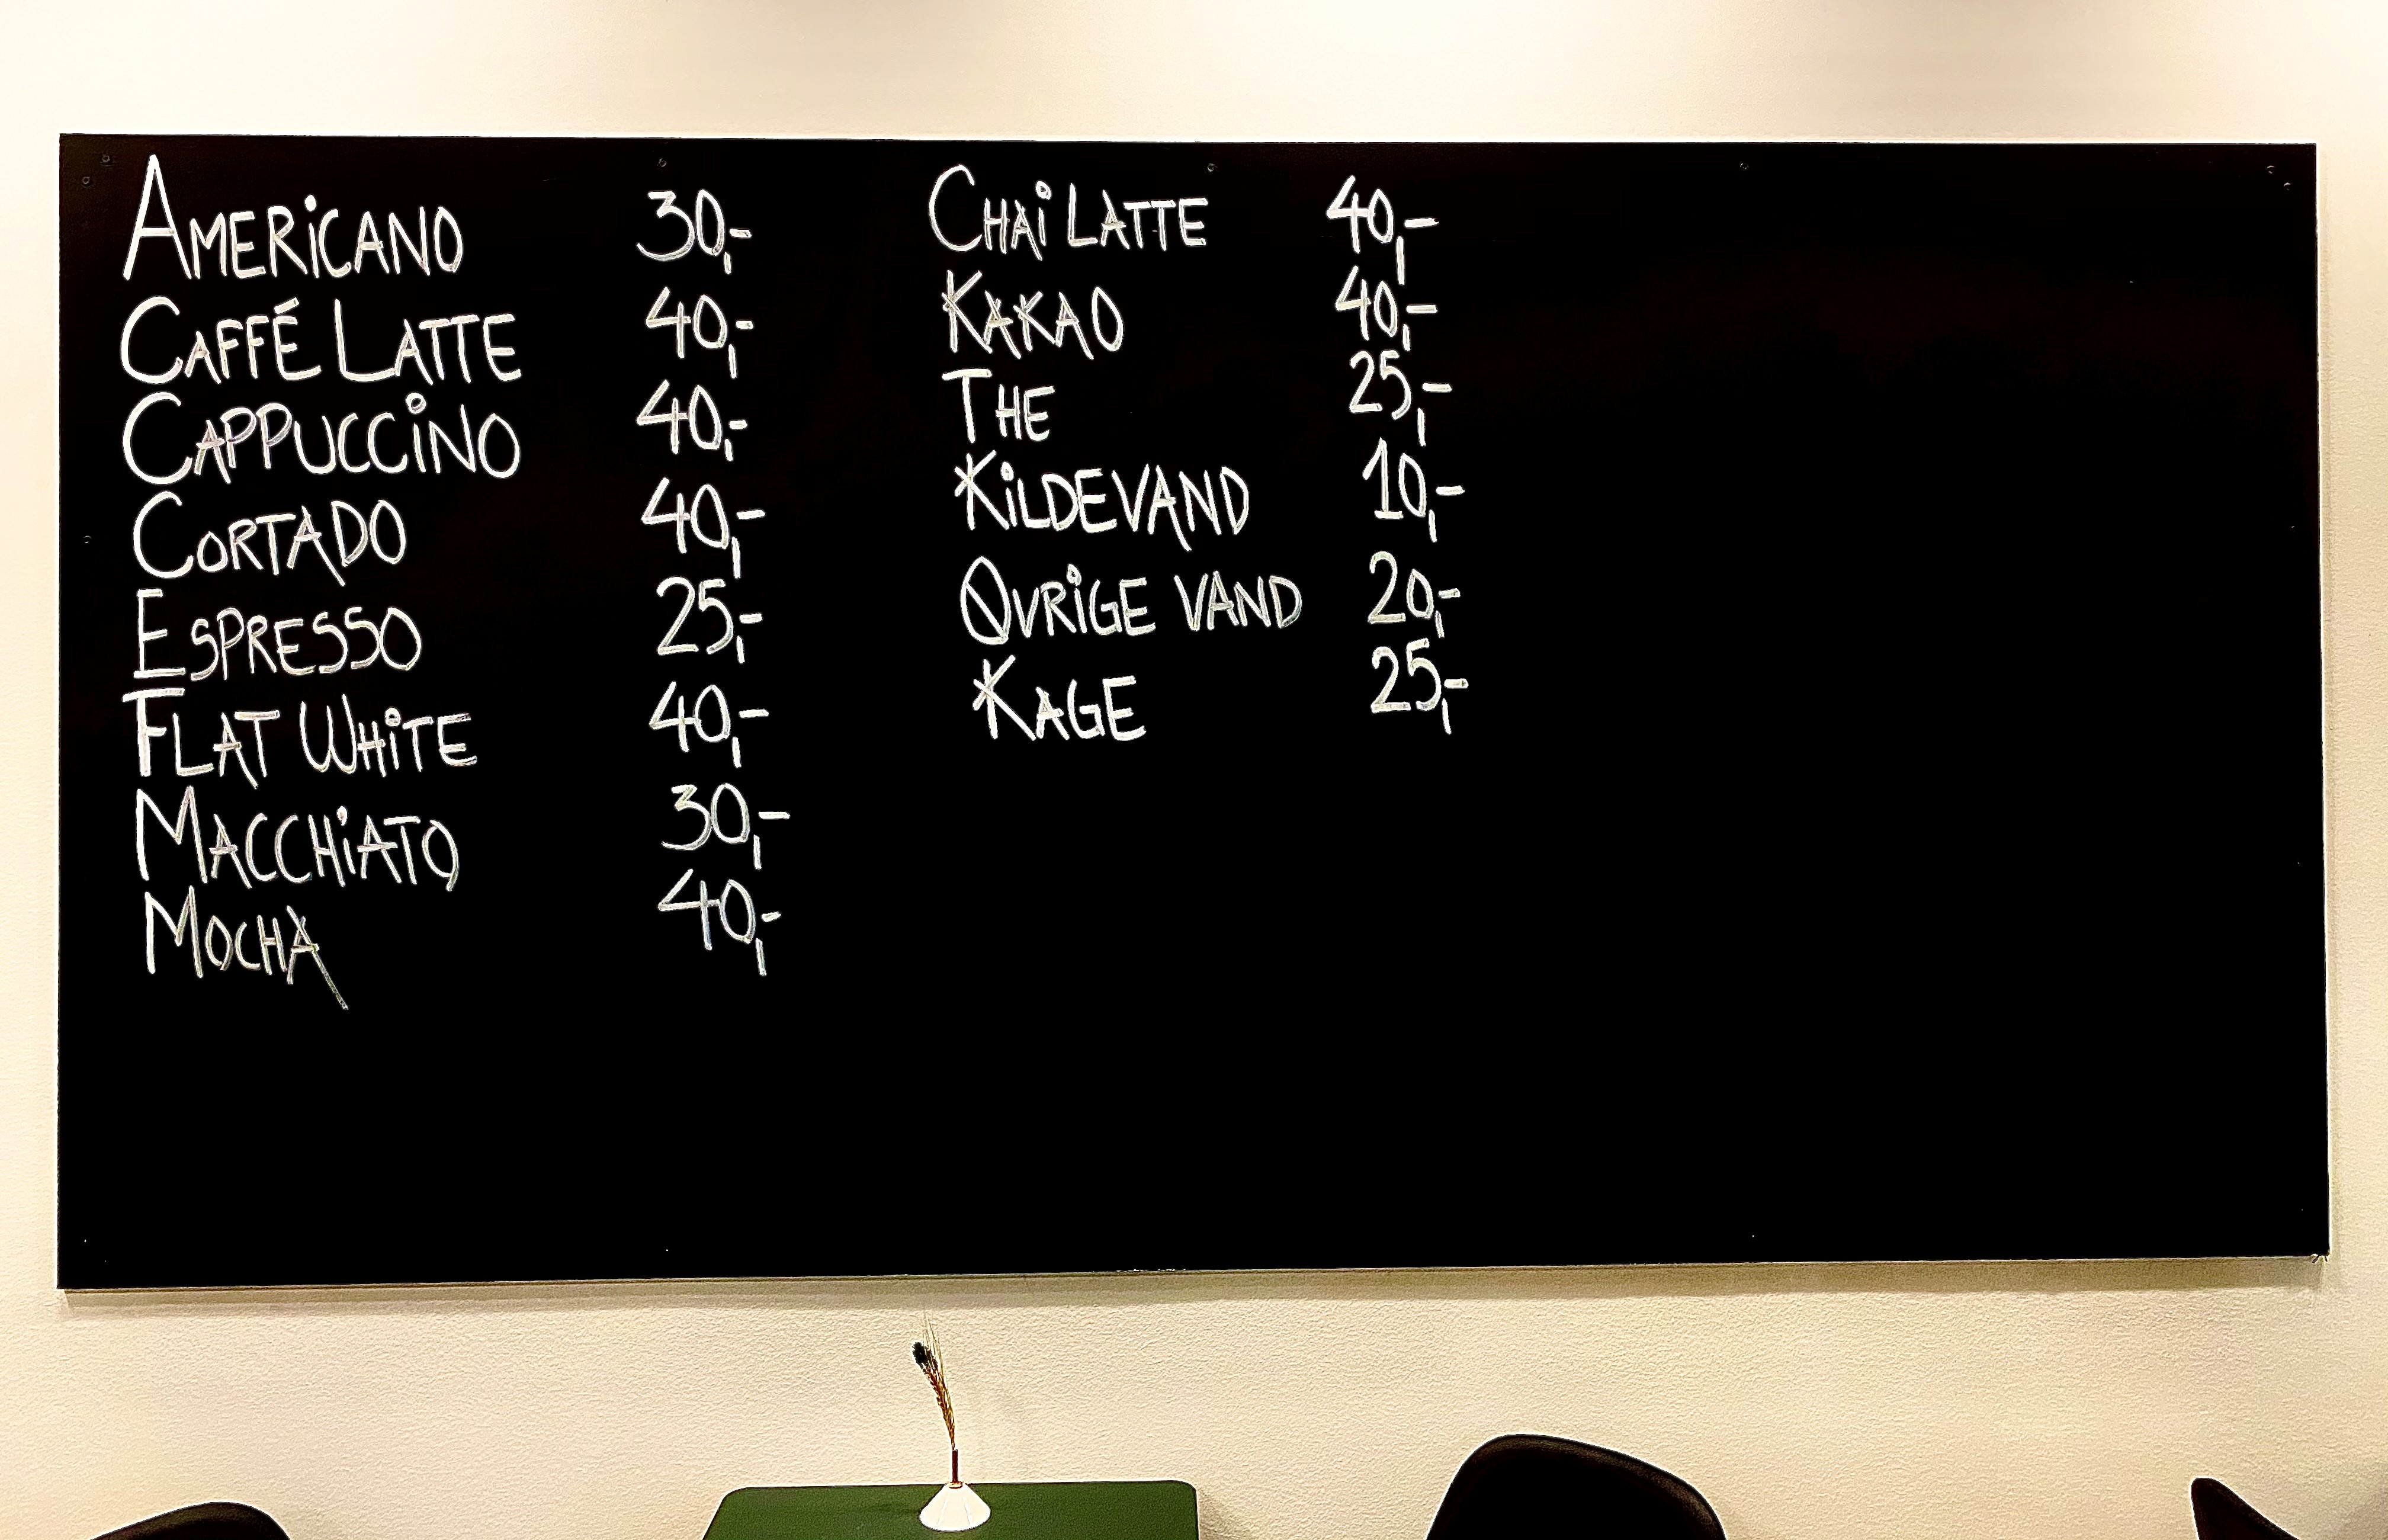 AMERICANO 30,-
CAFFÉ LATTE 40,-
CAPPUCCINO 40,-
CORTADO 40,-
ESPRESSO 25,-
FLAT WHITE 40,-
MACCHIATO 30,-
MOCHA 40,-
CHAI LATTE 40,-
KAKAO 40,-
THE 25,-
KILDEVAND 10,-
ØVRIGE VAND 20,-
KAGE 25,-